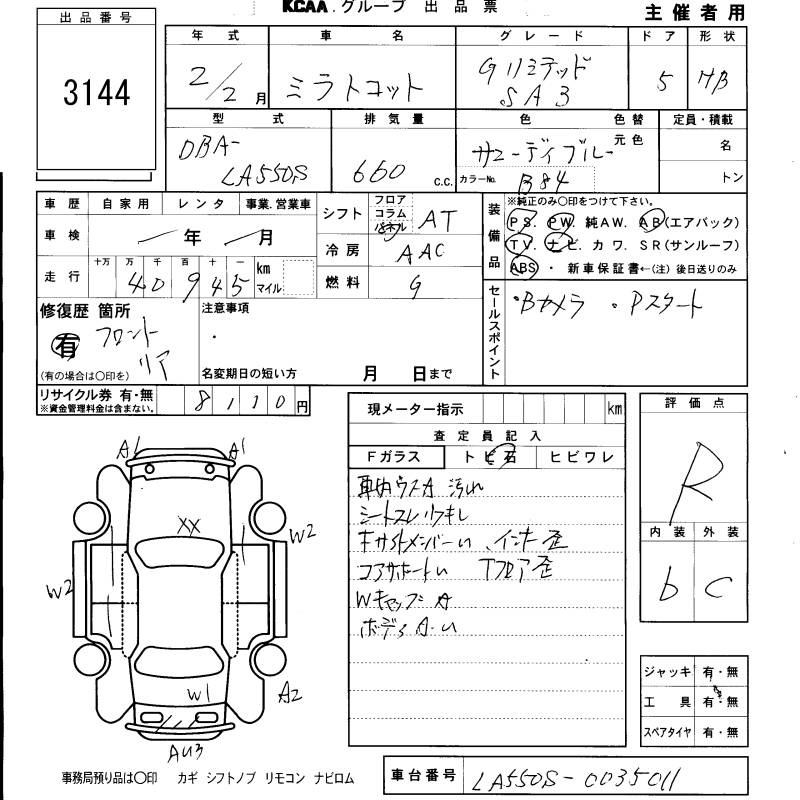 KCAA グループ 出品票
主催者用
出品番号
3144
年式 車名 グレード ドア 形状
2/2月 ミラトコット Gリミテッド SA3 5 HB
型式 排気量 色 色替 定員・積載
DBA-LA550S 660 c.c. サニーディブルー 元色 名
カラーNo. B84 トン
車歴 自家用 レンタ 事業.営業車
シフト フロア コラム パネル AT
装備品 ※純正のみ○印をつけて下さい。
PS. PW. 純AW. AB(エアバック)
TV. ナビ. カワ. SR(サンルーフ)
ABS・新車保証書←(注)後日送りのみ
車検 年 月
冷房 AAC
走行 十万 万 千 百 十 一 km マイル
40945
燃料 G
修復歴 箇所
有 フロント リア
(有の場合は○印を)
注意事項
名変期日の短い方 月 日まで
セールスポイント
・Bカメラ ・Pスタート
リサイクル券 有・無
※資金管理料金は含まない。
8110円
現メーター指示 km
査定員記入
Fガラス トビ石 ヒビワレ
車内ウスA 汚れ
シートスレ
キサイドメンバーU、インナー歪
コアサポートU Tフロア歪
WキャップA
ボディA.U
評価点
R
内装 外装
b C
ジャッキ 有・無
工具 有・無
スペアタイヤ 有・無
A1 A1
XX
W2
W2
W1
A2
AU3
事務局預り品は○印 カギ シフトノブ リモコン ナビロム
車台番号 LA550S-0035011